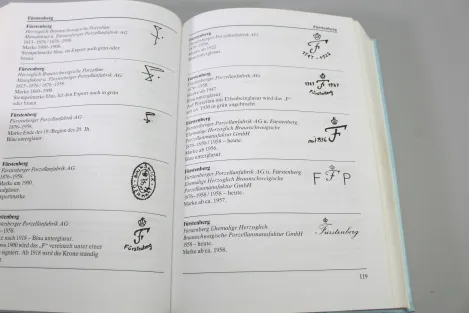 Fürstenberg
Fürstenberg
Herzoglich Braunschweigische Porzellan
Manufaktur u. Fürstenberger Porzellanfabrik AG
Marke 1888–1908.
Stempelmarke blau, im Export auch grün oder
braun
Fürstenberg
Herzoglich Braunschweigische Porzellan
Manufaktur u. Fürstenberger Porzellanfabrik AG
Stempelmarke blau, im Export auch grün oder
braun
Fürstenberg
Fürstenberger Porzellanfabrik AG
1876–1956.
Marke Ende des 19./Beginn des 20. Jh.
Blau unterglasur.
Fürstenberg
Fürstenberger Porzellanfabrik AG
1876–1956.
Marke um 1900.
Fürstenberg
Fürstenberger Porzellanfabrik AG
nach 1918 – Blau unterglasur.
1900 wird das „F“ vereinzelt unter einer
signiert. Ab 1918 wird die Krone ständig
Fürstenberg
Fürstenberg
Fürstenberg
Fürstenberger Porzellanfabrik AG
1876–1956.
Blau unterglasur.
Fürstenberg
Fürstenberger Porzellanfabrik AG
1876–1956.
Marke ab 1947
Blau unterglasur.
Fürstenberg
Fürstenberger Porzellanfabrik AG u. Fürstenberg
Ehemalige Herzoglich Braunschweigische
Porzellanmanufaktur GmbH
1876–1956 / 1956 – heute.
Marke ab 1956.
Blau unterglasur.
Fürstenberg
Fürstenberger Porzellanfabrik AG u. Fürstenberg
Ehemalige Herzoglich Braunschweigische
Porzellanmanufaktur GmbH
1876–1956 / 1956 – heute.
Marke ab ca. 1957.
F F P
Fürstenberg
Fürstenberg Ehemalige Herzoglich
Braunschweigische Porzellanmanufaktur GmbH
1956 – heute.
Marke ab ca. 1958.
Fürstenberg
119